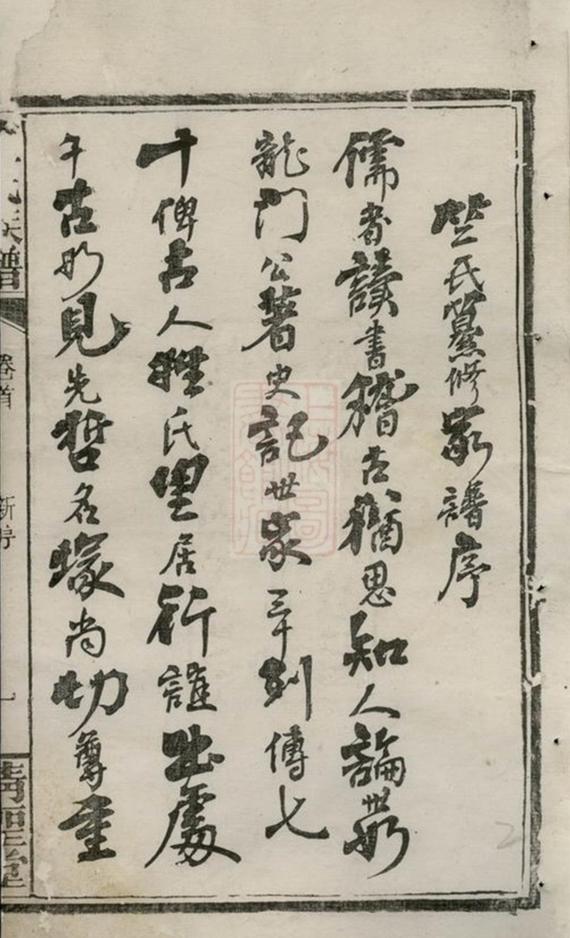 竺氏纂修家譜序
儒者讀書稽古猶思知人論世如
龍門公著史記世家三十列傳七
十俾古人姓氏里居行誼出處
千古如見先哲名塚尚切尊重
氏族譜
卷首
新序
一
聖堂